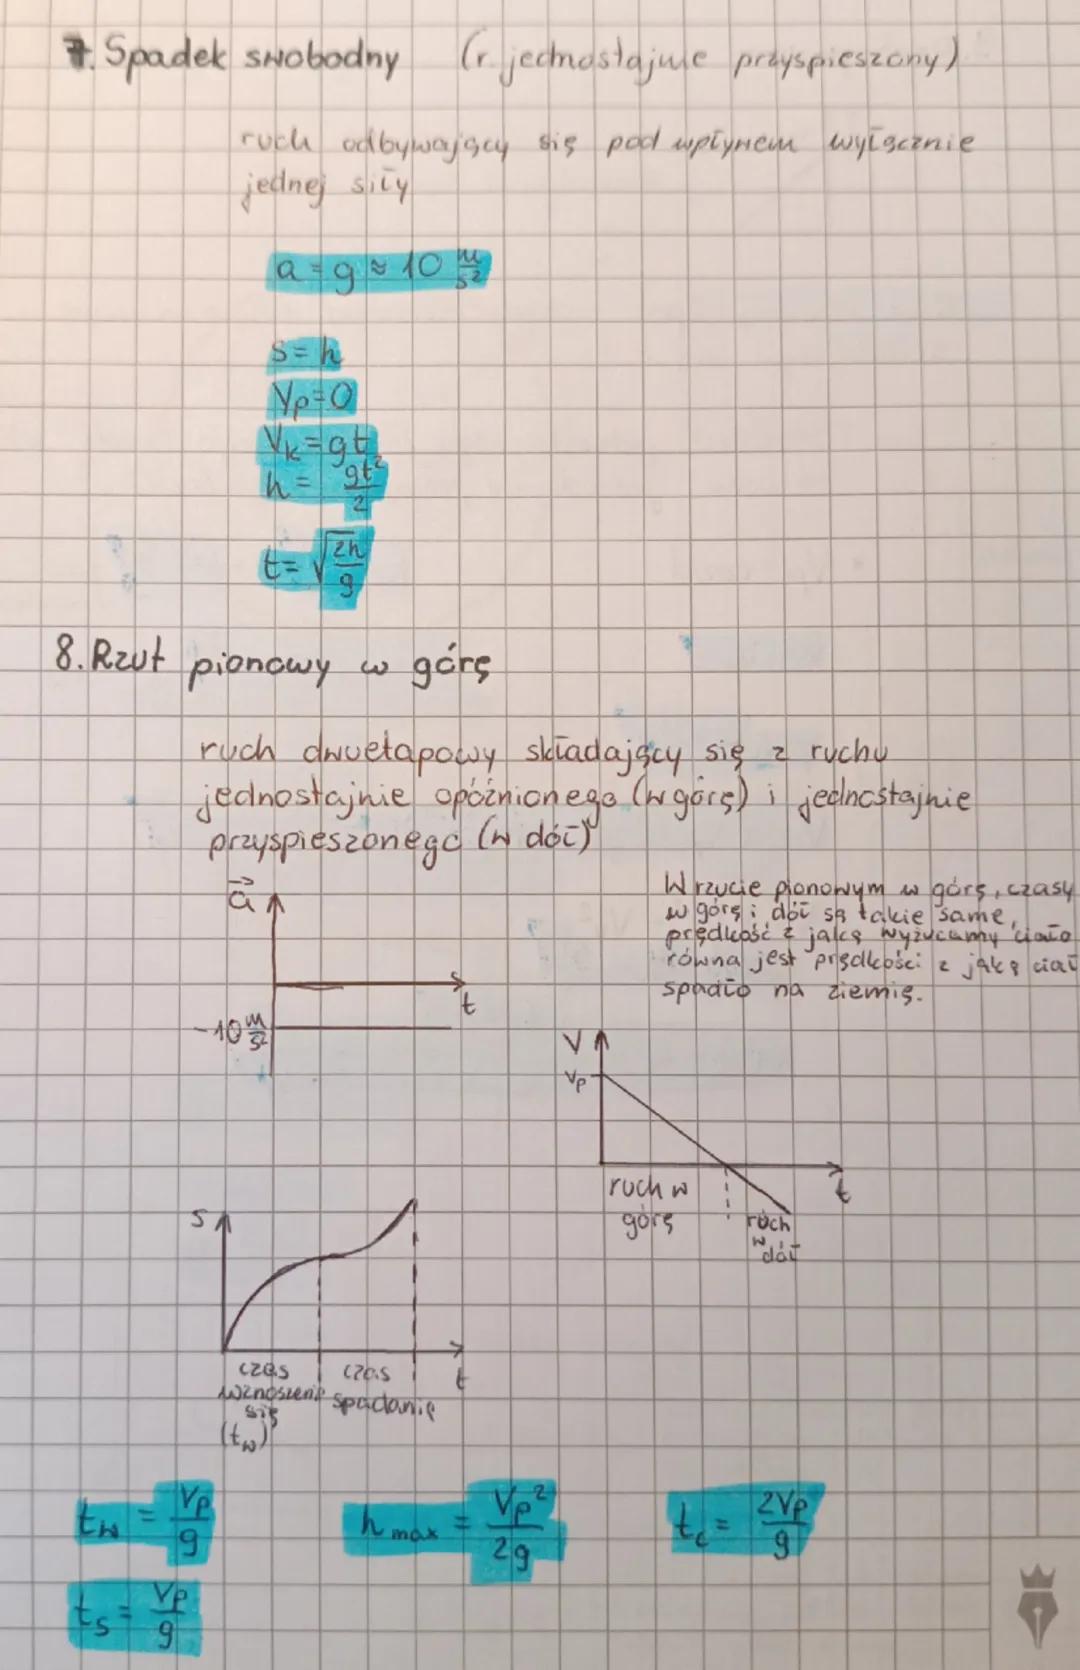 7. Spadek swobodny (r. jednostajnie przyspieszony)
ruch odbywający się pod wpływem wyłącznie
jednej siły
a = g ≈ 10 m/s²
s = h
Vp = 0
Vk = gt
h = gt²/2
t = √(2h/g)
8. Rzut pionowy w górę
ruch dwuetapowy składający się z ruchu
jednostajnie opóźnionego (w górę) i jednostajnie
przyspieszonego (w dół)
W rzucie pionowym w górę, czasy
w górę i dół są takie same,
prędkość z jaką wyżucamy ciało
równa jest prędkości z jaką ciał
spadło na ziemię.
a
t
-10 m/s²
V
Vp
t
ruch w
górę
ruch
w
dół
s
t
czas
wznoszenie
się
(tw)
czas
spadanie
tw = Vp/g
hmax = Vp²/2g
tc = 2Vp/g
ts = Vp/g